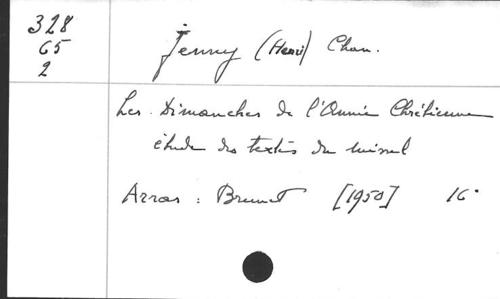 328
65
2
Jenny (Henri) Chan.
Les Dimanches de l'Année Chrétienne
étude des textes du missel
Arras : Brunet [1950] 16°